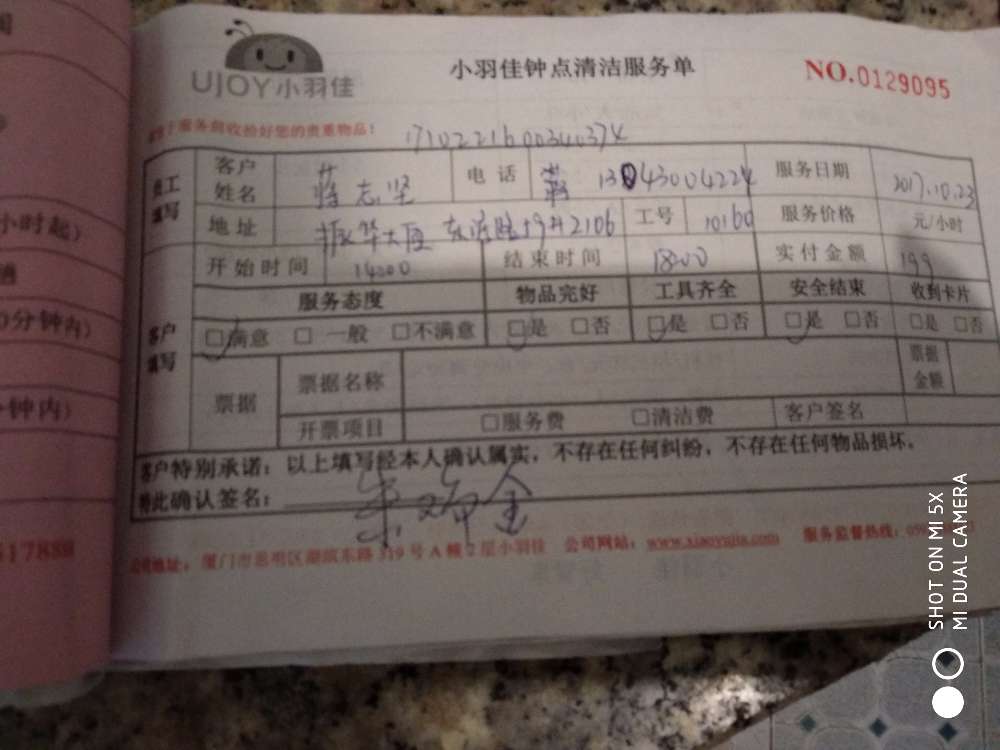 UJOY小羽佳
小羽佳钟点清洁服务单
NO.0129095
于服务前收拾好您的贵重物品！
1710221600340374
员工填写
客户姓名 蒋志坚 电话 13043004224 服务日期 2017.10.23
地址 振华大厦 2106 工号 10160 服务价格 元/小时
开始时间 14:00 结束时间 18:00 实付金额 199
客户填写
服务态度 物品完好 工具齐全 安全结束 收到卡片
□满意 □一般 □不满意 □是 □否 □是 □否 □是 □否 □是 □否
票据 票据名称 票据金额
开票项目 □服务费 □清洁费 客户签名
客户特别承诺：以上填写经本人确认属实，不存在任何纠纷，不存在任何物品损坏。
特此确认签名：
公司地址：厦门市思明区湖滨东路319号A幢2层小羽佳 公司网站：www.xiaoyujia.com 服务监督热线：
小时起）
0分钟内）
分钟内）
517889
SHOT ON MI 5X
MI DUAL CAMERA